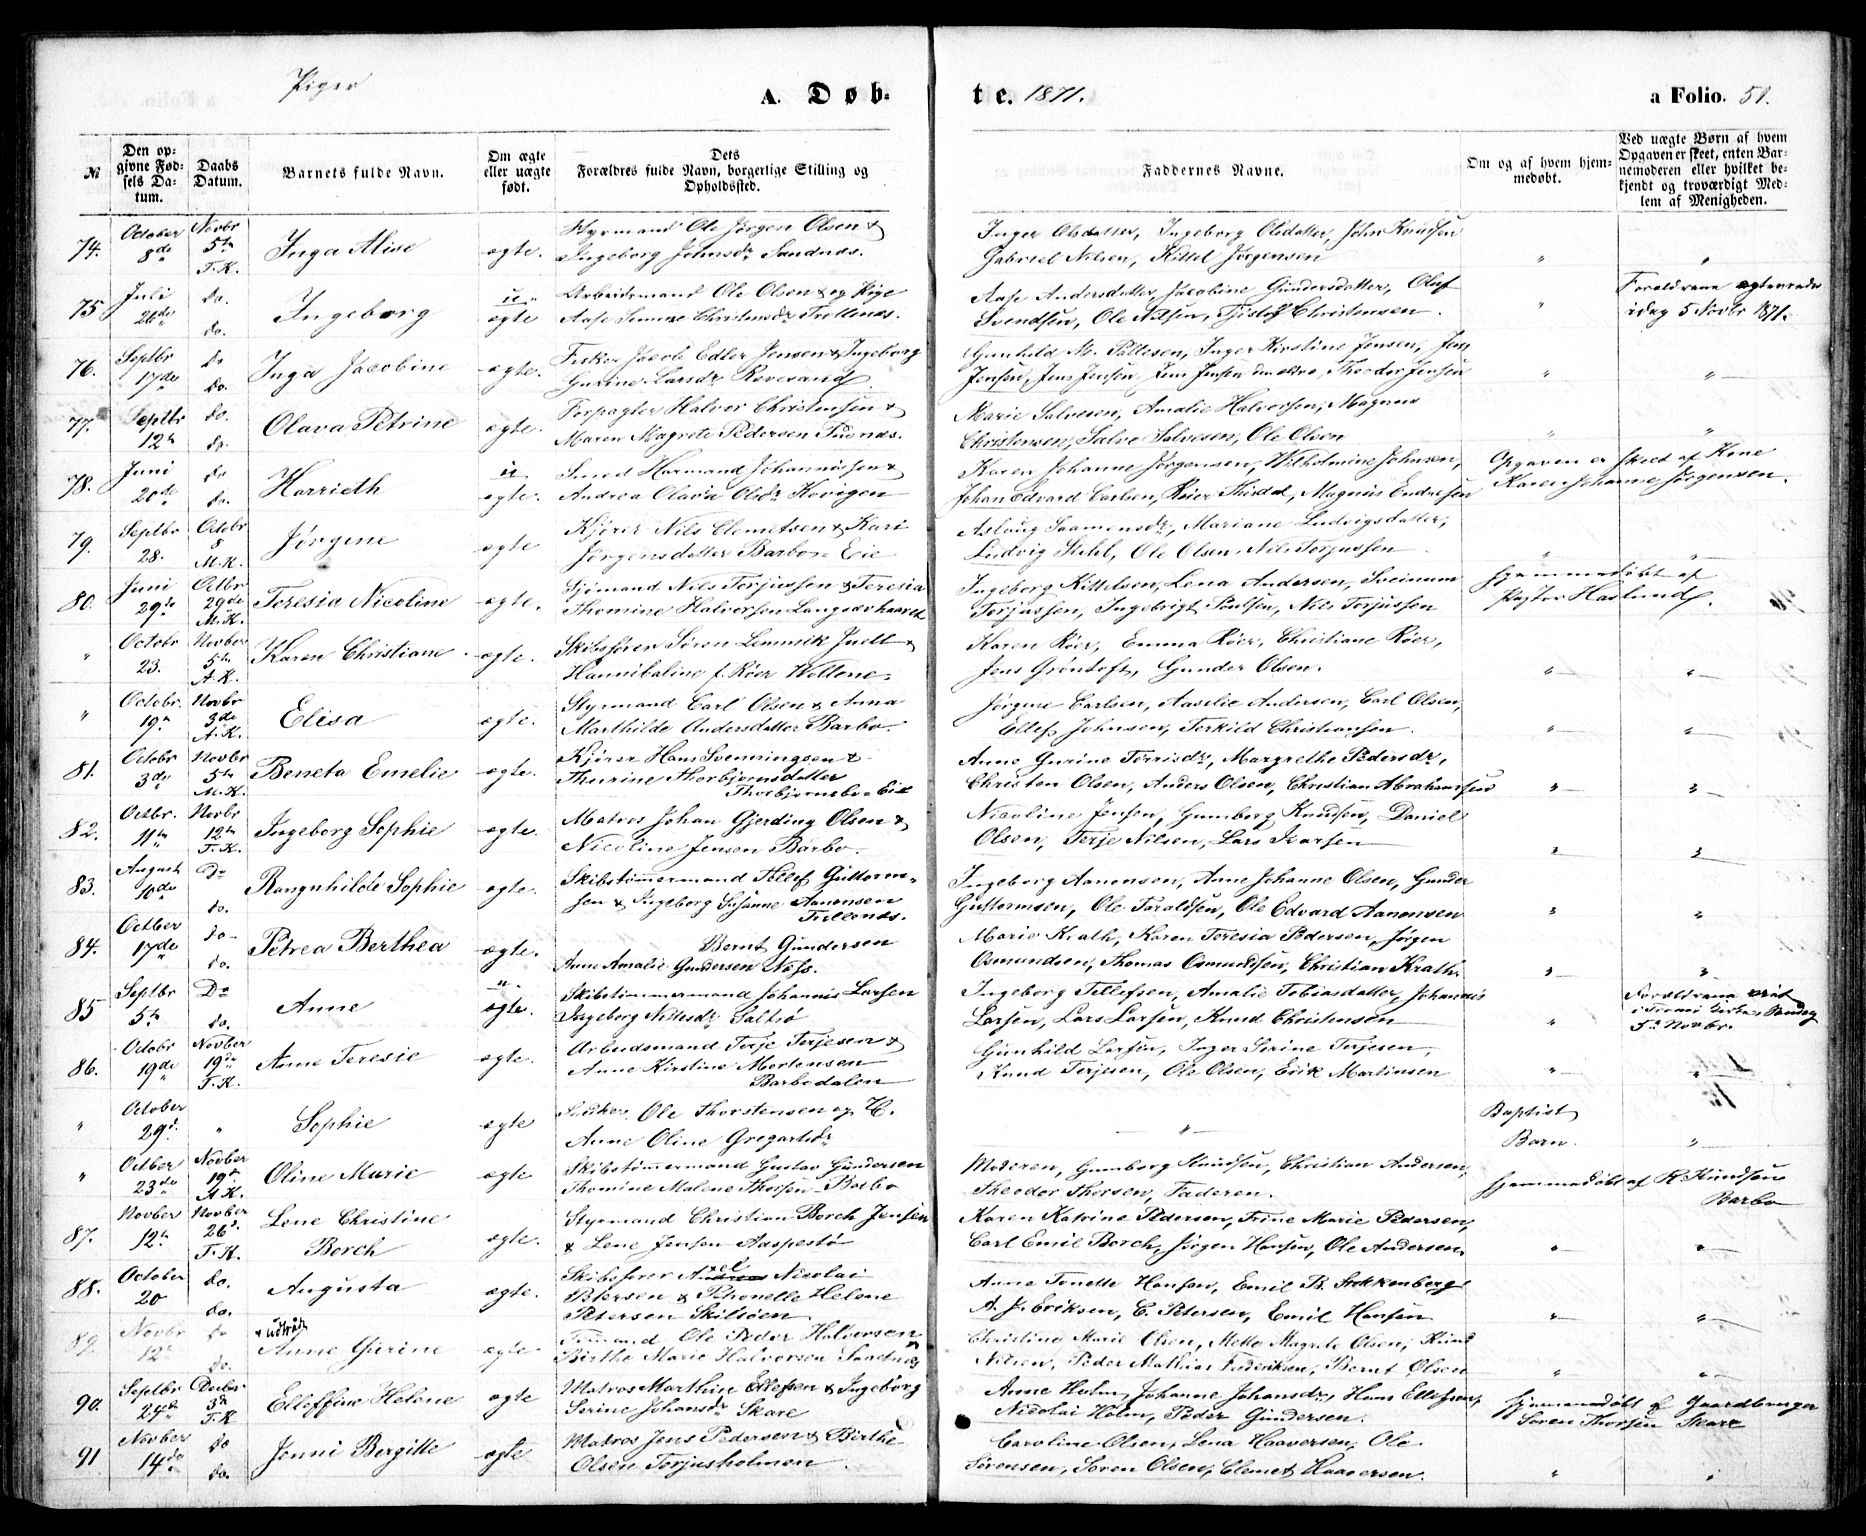 Piger
A. Døb-
te. 1871.
a Folio. 51.
№
Den op-
givne Fød-
sels Da-
tum.
Daabs
Datum.
Barnets fulde Navn.
Om ægte
eller uægte
født.
Dets
Forældres fulde Navn, borgerlige Stilling og
Opholdssted.
Faddernes Navne.
Om og af hvem hjem-
medøbt.
Ved uægte Børn af hvem
Opgaven er skeet, enten Bar-
nemoderen eller hvilket be-
kjendt og troværdigt Med-
lem af Menigheden.
74. October 8de Novbr 5te T.K. Inga Alise ægte.
Styrmand Ole Jørgen Olsen &
Ingeborg Johnsdr Sandnæs.
Inger Olsdatter, Ingeborg Olsdatter, John Knudsen
Gabriel Nilsen, Kittel Jørgensen
75 Juli 26de do. do. Ingeborg u. ægte
Arbeidsmand Ole Olsen & og Pige
Aase Christensdr Tvillenæs.
Aase Andersdatter, Jacobine Gundersdatter, Oluf
Svendsen, Ole Nilsen, Tjislef Christensen.
Forældrene ægteviede
idag 5 Novbr 1871.
76. Septbr 17de do do. Inga Jacobine ægte.
Fisker Jacob Edler Jensen & Ingeborg
Gurine Larsdr Revesand
Gunhild M. Pettesen, Inger Kirstine Jensen, Jens
Jensen, Jens Jensen, Theodor Jensen
77. Septbr 12te do. do. Olava Petrine ægte.
Forpagter Halvor Christensen &
Maren Magrete Pedersen
Marie Salvesen, Amalie Halvorsen, Magnus
Christensen, Salve Salvesen, Ole Olsen
78. Juni 20de do do. Harrieth u ægte.
Smed Harmand Johannessen &
Andrea Olava Olsdr Kovigen
Karen Johanne Jørgensen, Wilhelmine Johnsen,
Johan Edvard Carlsen, Røier, Magnus Endresen
Opgaven er skeet af Kone
Karen Johanne Jørgensen.
79. Septbr 28. Octobr 8 M.K. Jørgine ægte
Kjører Nils Clemetsen & Kari
Jørgensdatter Barbo Eie
Aslaug Saamensdr, Mariane Ludvigsdatter,
Ludvig, Ole Olsen, Nils Torjussen
80. Juni 29de Octbr 29de M.K. Teresia Nicoline ægte.
Sjømand Nils Torjussen & Teresia
Thomine Halvorsen Langsæhaavet
Ingeborg Kittelsen, Lena Andersen, Sveinum
Torjussen, Ingebrigt Paulsen, Nils Torjussen
Hjemmedøbt af
Pastor Haslund.
" Octobr 23. Novber 5te A.K. Karen Christiane. ægte.
Skibsfører Søren Lemmik Juell &
Hannibaline f. Røer
Karen Røer, Emma Røer, Christiane Røer,
Jens Grøntoft, Gunder Olsen.
" Octobr. 19de Novbr 3de A.K. Elisa ægte.
Styrmand Carl Olsen & Anna
Marthilde Andersdatter Barbo
Jørgine Carlsen, Aaselie Andersen, Carl Olsen,
Ellef Johnsen, Terkild Christiansen.
81. Octobr 3de Novbr 5te M.K. Beneta Emelie ægte.
Kjører Hans Svenningsen &
Thurine Thorbjørnsdatter
Thorbjørnsbo Eie
Anne Gurine Terrisdr, Margrethe Pedersdr,
Christen Olsen, Anders Olsen, Christian Abrahamsen
82. Octbr. 11te Novbr 12te T.K. Ingeborg Sophie ægte.
Matros Johan Gjerding Olsen &
Nicoline Jensen Barbo.
Nicoline Jensen, Gunborg Knudsen, Daniel
Olsen, Terje Nilsen, Lars Ivarsen
83. August 10de Do do. Rangnhilde Sophie ægte.
Skibstømmermand Tellef Guttorm-
sen & Ingeborg Susanne Aanonsen
Tvillenæs.
Ingeborg Aanonsen, Anne Johanne Olsen, Gunder
Guttormsen, Ole Taraldsen, Ole Edvard Aanonsen
84. Octber 17de do do. Petrea Berthea ægte.
Bernt Gundersen
Anne Amalie Gundersen Næss.
Marie Krath, Karen Teresia Pedersen, Jørgen
Osmundsen, Thomas Osmundsen, Christian Krath.
85 Septbr 5te Do do. Anne u. ægte.
Skibstømmermand Johannes Larsen
Ingeborg Nilsesdr Saltrø
Ingeborg Tellefsen, Amalie Tobiasdatter, Johannes
Larsen, Lars Larsen, Knud Christensen
Forældrene viet
i Tromø Kirke
5te Novbr.
86. Octobr 19de Novber 19de T.K. Anne Teresie ægte.
Arbeidsmand Terje Terjesen &
Anne Kirstine Mortensen
Barbodalen
Gunhild Larsen, Inger Serine Terjesen,
Knud Terjesen, Ole Olsen, Erik Martinsen
" October 29d. " Sophie ægte
Snedker Ole Thorstensen og H.
Anne Oline Gregartsdr
Baptist
Barn.
" Octber 23de Novber 19de A.K. Oline Marie ægte
Skibstømmermand Gustav Gundersen
Thomine Malene Thorsen Barbo
Moderen, Gunborg Knudsen, Christian Andersen,
Theodor Thorsen, Faderen.
Hjemmedøbt af R. Knudsen
Barbo
87. Novber 12te Novber 26d. T.K. Lene Christine
Borch ægte.
Styrmand Christian Borch Jensen
& Lene Jensen Aaspestø
Karen Katrine Pedersen, Trine Marie Pedersen,
Carl Emil Borch, Jørgen Hansen, Ole Andersen.
88. October 20 do. do. Augusta ægte.
Skibsfører Axel Nicolai
Petersen & Petronelle Helene
Petersen Skilsøen
Anne Tonette Hansen, Emil B. Stokkenberg
A. J. Eriksen, C. Petersen, Emil Hansen
89. Novbr 12te do do. + udtraadt
Anne Gurine ægte
Tømmand Ole Peder Halvorsen
Birthe Marie Halvorsen Sandnæs
Christine Marie Olsen, Mette Magrete Olsen, Knud
Nilsen, Peder Mathias Frederiksen, Bernt Olsen
90. Septbr 24de Decbr 3d T.K. Elleffine Helene ægte
Matros Marthin Ellefsen & Ingeborg
Serine Johansdr Skare
Anne Holm, Johanne Johansdr, Hans Ellefsen,
Nicolai Holm, Peder Gundersen.
Hjemmedøbt af Gaardbruger
Søren Thorsen Skare
91 Novber 14de do do. Jenni Bergitte ægte
Matros Jens Pedersen & Birthe
Olsen Torjusholmen.
Caroline Olsen, Lena Haaversen, Ole
Sørensen, Søren Olsen, Clemet Haaversen.